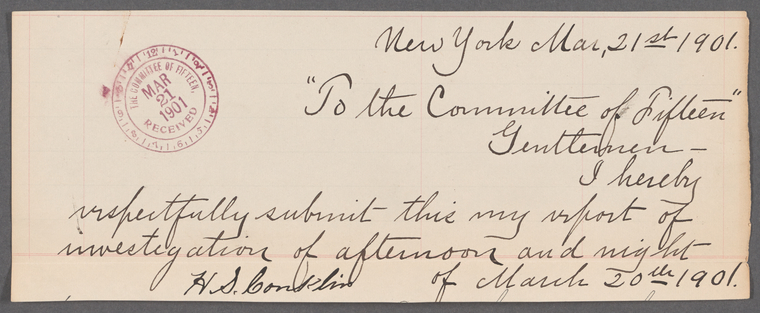 New York Mar, 21st 1901.
THE COMMITTEE OF FIFTEEN.
MAR
21
1901
RECEIVED
"To the Committee of Fifteen"
Gentlemen —
I hereby
respectfully submit this my report of
investigation of afternoon and night
H. S. Conklin of March 20th 1901.